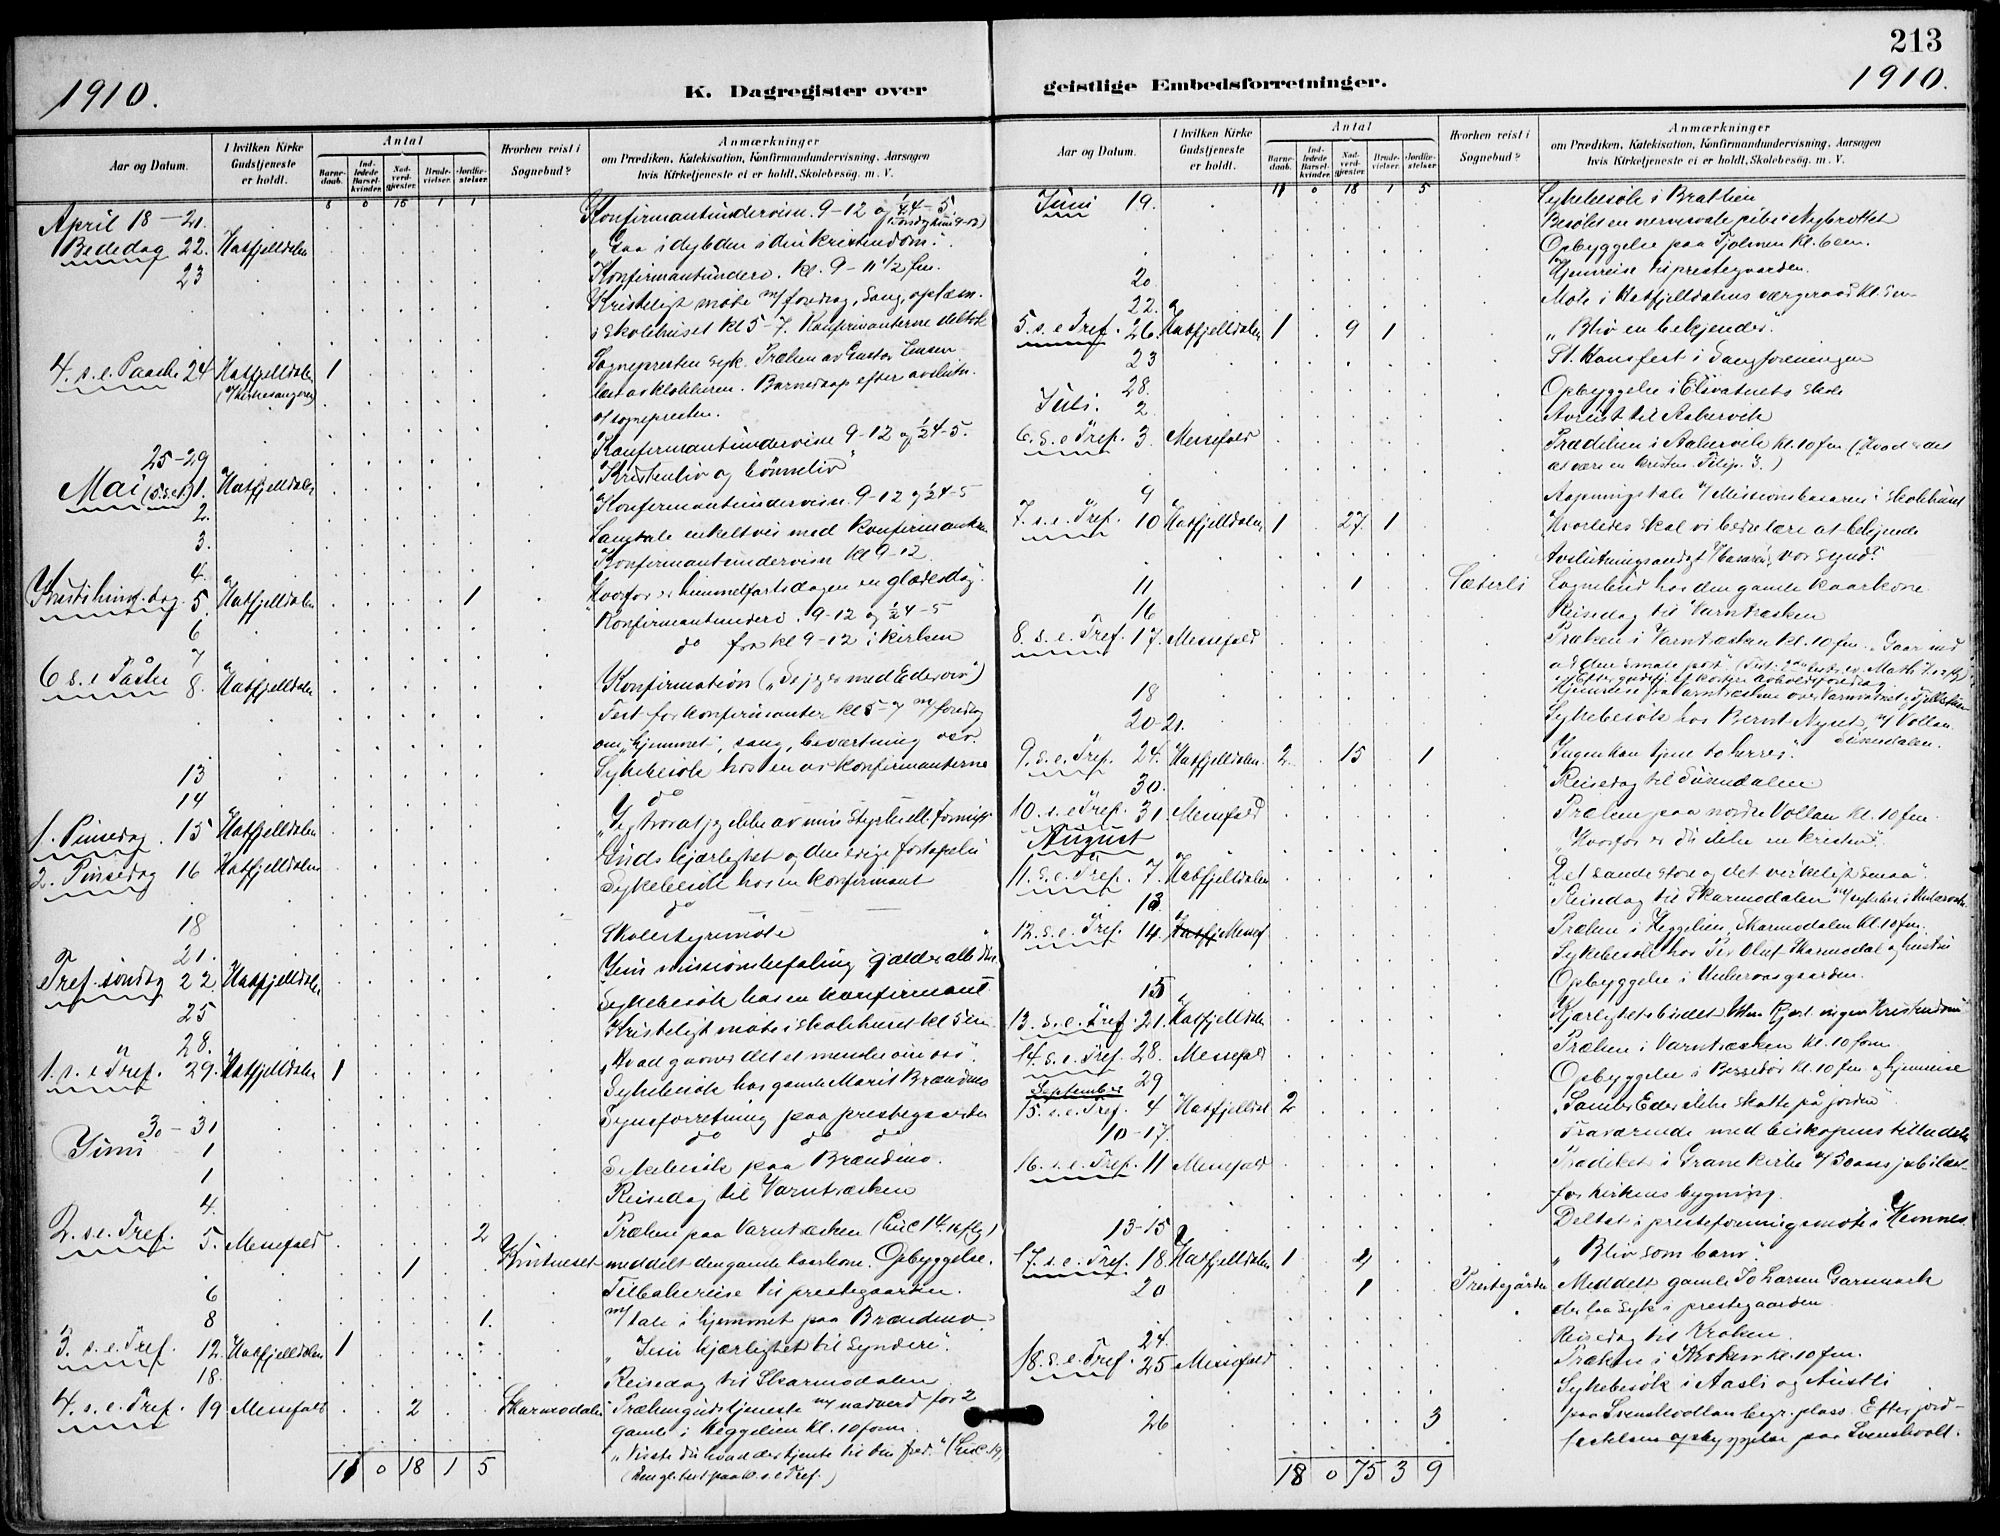 213
1910.
K. Dagregister over
geistlige Embedsforretninger.
1910.
Aar og Datum.
I hvilken Kirke Gudstjeneste er holdt.
Antal
Barnedaab.
Indledede Barselkvinder.
Nadverdgjester.
Brudevielser.
Jordfæstelser.
Hvorhen reist i Sognebud?
Anmærkninger
om Prædiken, Katekisation, Konfirmandundervisning, Aarsagen
hvis Kirketjeneste ei er holdt, Skolebesøg. m. V.
8 0 15 1 1
April 18-21. Konfirmantundervisn. 9-12 og ½4-5.
Bededag 22. Hatfjelldalen "Gaa i dybden i din kristendom".
23 Konfirmantunderv. kl. 9-11½ fm.
Kristeligt møte m/foredrag, Sang, oplæsn.
i skolehuset kl 5-7. Konfirmanterne deltok
4. s. e. Paaske 24 Hatfjelldalen 1 Sognepresten syk. Præken av Gustav Jensen
(v/kirkesangeren) læst av klokkeren. Barnedaap efter avslutn.
v/ sognepresten.
25-29 Konfirmantundervisn 9-12 og ½4-5.
Mai (5.s.e.P) 1. Hatfjelldalen "Kristenliv og bønneliv"
2. Konfirmantundervisn. 9-12 og ½4-5
3. Samtale enkeltvis med konfirmanterne
4. Konfirmantundervisn kl 9-12
Kristi himf. dag 5. Hatfjelldalen 1 Hvorfor er himmelfartsdagen en glædesdag".
6 Konfirmantunderv. 9-12 og ½4-5
7 do fra kl 9-12 i kirken
6 s. e Påske 8. Hatfjelldalen Konfirmation
Fest for konfirmanter kl 5-7 m/ foredrag
om "hjemmet", sang, beværtning osv.
13 Sykebesøk hos en av konfirmanterne
14 do
1. Pinsedag 15 Hatfjelldalen
2. Pinsedag 16 Hatfjelldalen Guds kjærlighet og den evige fortapelse
18 Sykebesøk hos en konfirmant
do
21. Skolestyremøte
Tref. søndag 22 Hatfjelldalen Jesu missionsbefaling gjælder alle
25 Sykebesøk hos en konfirmant
" 28. Kristeligt møte i skolehuset kl 5 em
1. s. e Tref. 29. Hatfjelldalen 1 "Hvad gavner det et menneske om osv".
Sykebesøk hos gamle Marit Brændmo
30-31 Synsforretning paa prestegaarden
Juni 1 do do do
1 Sykebesøk paa Brændmo.
4. Reisedag til Varntræsken
2. s. e. Tref. 5. Messefald 2 Præken paa Varntræsken (Luc 14. 16 flg)
1 meddelt den gamle kaarkone. Opbyggelse.
6 Tilbakereise til prestegaarden.
8 1. m/ tale i hjemmet paa Brændmo.
3. s. e. Tref. 12. Hatfjelldalen 1 "Jesu kjærlighet til syndere".
18. Reisedag til Skarmodalen
4. s. e. Tref. 19 Messefald 2 Skarmodalen Prækengudstjeneste m/ nadverd for 2
gamle i Heggelien kl. 10 form
"Visste du hvad der tjente til din fred." (Luc. 19,
11 0 18 1 5
Aar og Datum.
I hvilken Kirke Gudstjeneste er holdt.
Antal
Barnedaab.
Indledede Barselkvinder.
Nadverdgjester.
Brudevielser.
Jordfæstelser.
Hvorhen reist i Sognebud?
Anmærkninger
om Prædiken, Katekisation, Konfirmandundervisning, Aarsagen
hvis Kirketjeneste ei er holdt, Skolebesøg. m. V.
11 0 18 1 5
Juni 19. Sykebesøk i Bratlien
Besøkt en nervesvak pike i Nybrottet
Opbyggelse paa Fjolmoen kl. 6 em.
20 Hjemreise til prestegaarden.
22. Møte i Hatfjelldalens værgeraad kl.
5. s. e Tref. 26. Hatfjelldalen 1 9 1 "Bliv en bekjender".
23 St. Hansfest i Sangforeningen
28. Opbyggelse i Elsvatnets skole
Juli. 2. Avreist til Aakervik
6. s. e Tref. 3. Messefald Prædiken i Aakervik kl. 10 fm (Hvad er det
at være en kristen. Filip. 3.)
9 Aapningstale v/ Missionsbasaren i skolehuset
7. s. e. Tref. 10 Hatfjelldalen 1 27 1 Hvorledes skal vi bedst lære at bekjende
vor synd?
11 1 Sæterli Sognebud hos den gamle kaarkone.
16 Reisedag til Varntræsken
8. s. e. Tref. 17. Messefald Præken i Varntræsken kl. 10 fm. "Gaar ind
ad den smale port".
18
20-21. Sykebesøk hos Bernt Nyret, v/ Vollan
Susendalen.
9. s. e. Tref. 24. Hatfjelldalen. 2 15 1 Ingen kan tjene to herrer".
30. Reisedag til Susendalen
10. s. e Tref. 31. Messefald Præken paa nordre Vollan kl. 10 fm.
August "Hvorfor er du ikke en kristen".
11. s. e. Tref. 7. Hatfjelldalen "Det sande store og det virkeligt smaa".
13 Reisedag til Skarmodalen
12. s. e. Tref. 14. Hatfj Messef Præken i Heggelien, Skarmodalen kl 10 fm.
Sykebesøk hos Per Oluf Skarmodal og hustru
15 Opbyggelse i Unkervasgaarden.
13. s. e. Tref. 21. Hatfjelldalen
14. s. e Tref. 28. Messefald Præken i Varntræsken kl. 10 form.
29 Opbyggelse i Bessedør kl. 10 fm. og hjemreise
September
15. s. e. Tref. 4 Hatfjelldal 2 "Samler Eder ikke skatte på jorden
10-17. Fraværende med biskopens tilladelse
16. s. e. Tref. 11 Messefald Prædiket i Grane kirke v/ 50 aars jubilæet
for kirkens bygning.
13-15 Deltat i presteforeningsmøte i Hemnes.
17. s. e. Tref. 18. Hatfjelldalen 1 2 "Bliv som barn".
20 1 Prestegården Meddelt gamle Jo Larsen Garsmark
der laa syk i prestegaarden.
24. Reisedag til Kroken.
18. s. e. Tref. 25 Messefald Præken i Kroken kl. 10 fm.
Sykebesøk i Aasli og Austli
26 3 paa Svenskvollan begr. plass. Efter jord-
fæstelsen opbyggelse paa Svenskvoll.
18 0 75 3 9